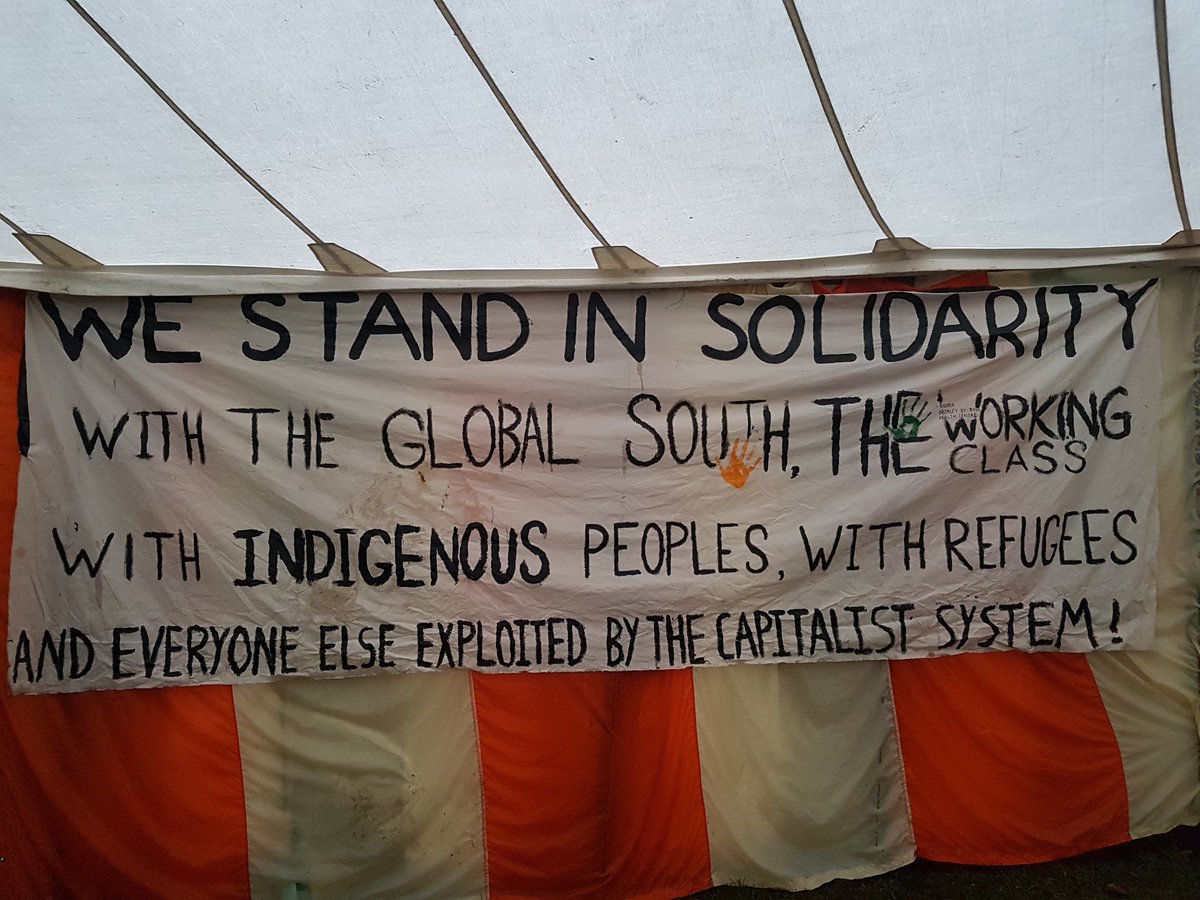 WE STAND IN SOLIDARITY
WITH THE GLOBAL SOUTH, THE WORKING
CLASS
WITH INDIGENOUS PEOPLES, WITH REFUGEES
AND EVERYONE ELSE EXPLOITED BY THE CAPITALIST SYSTEM!